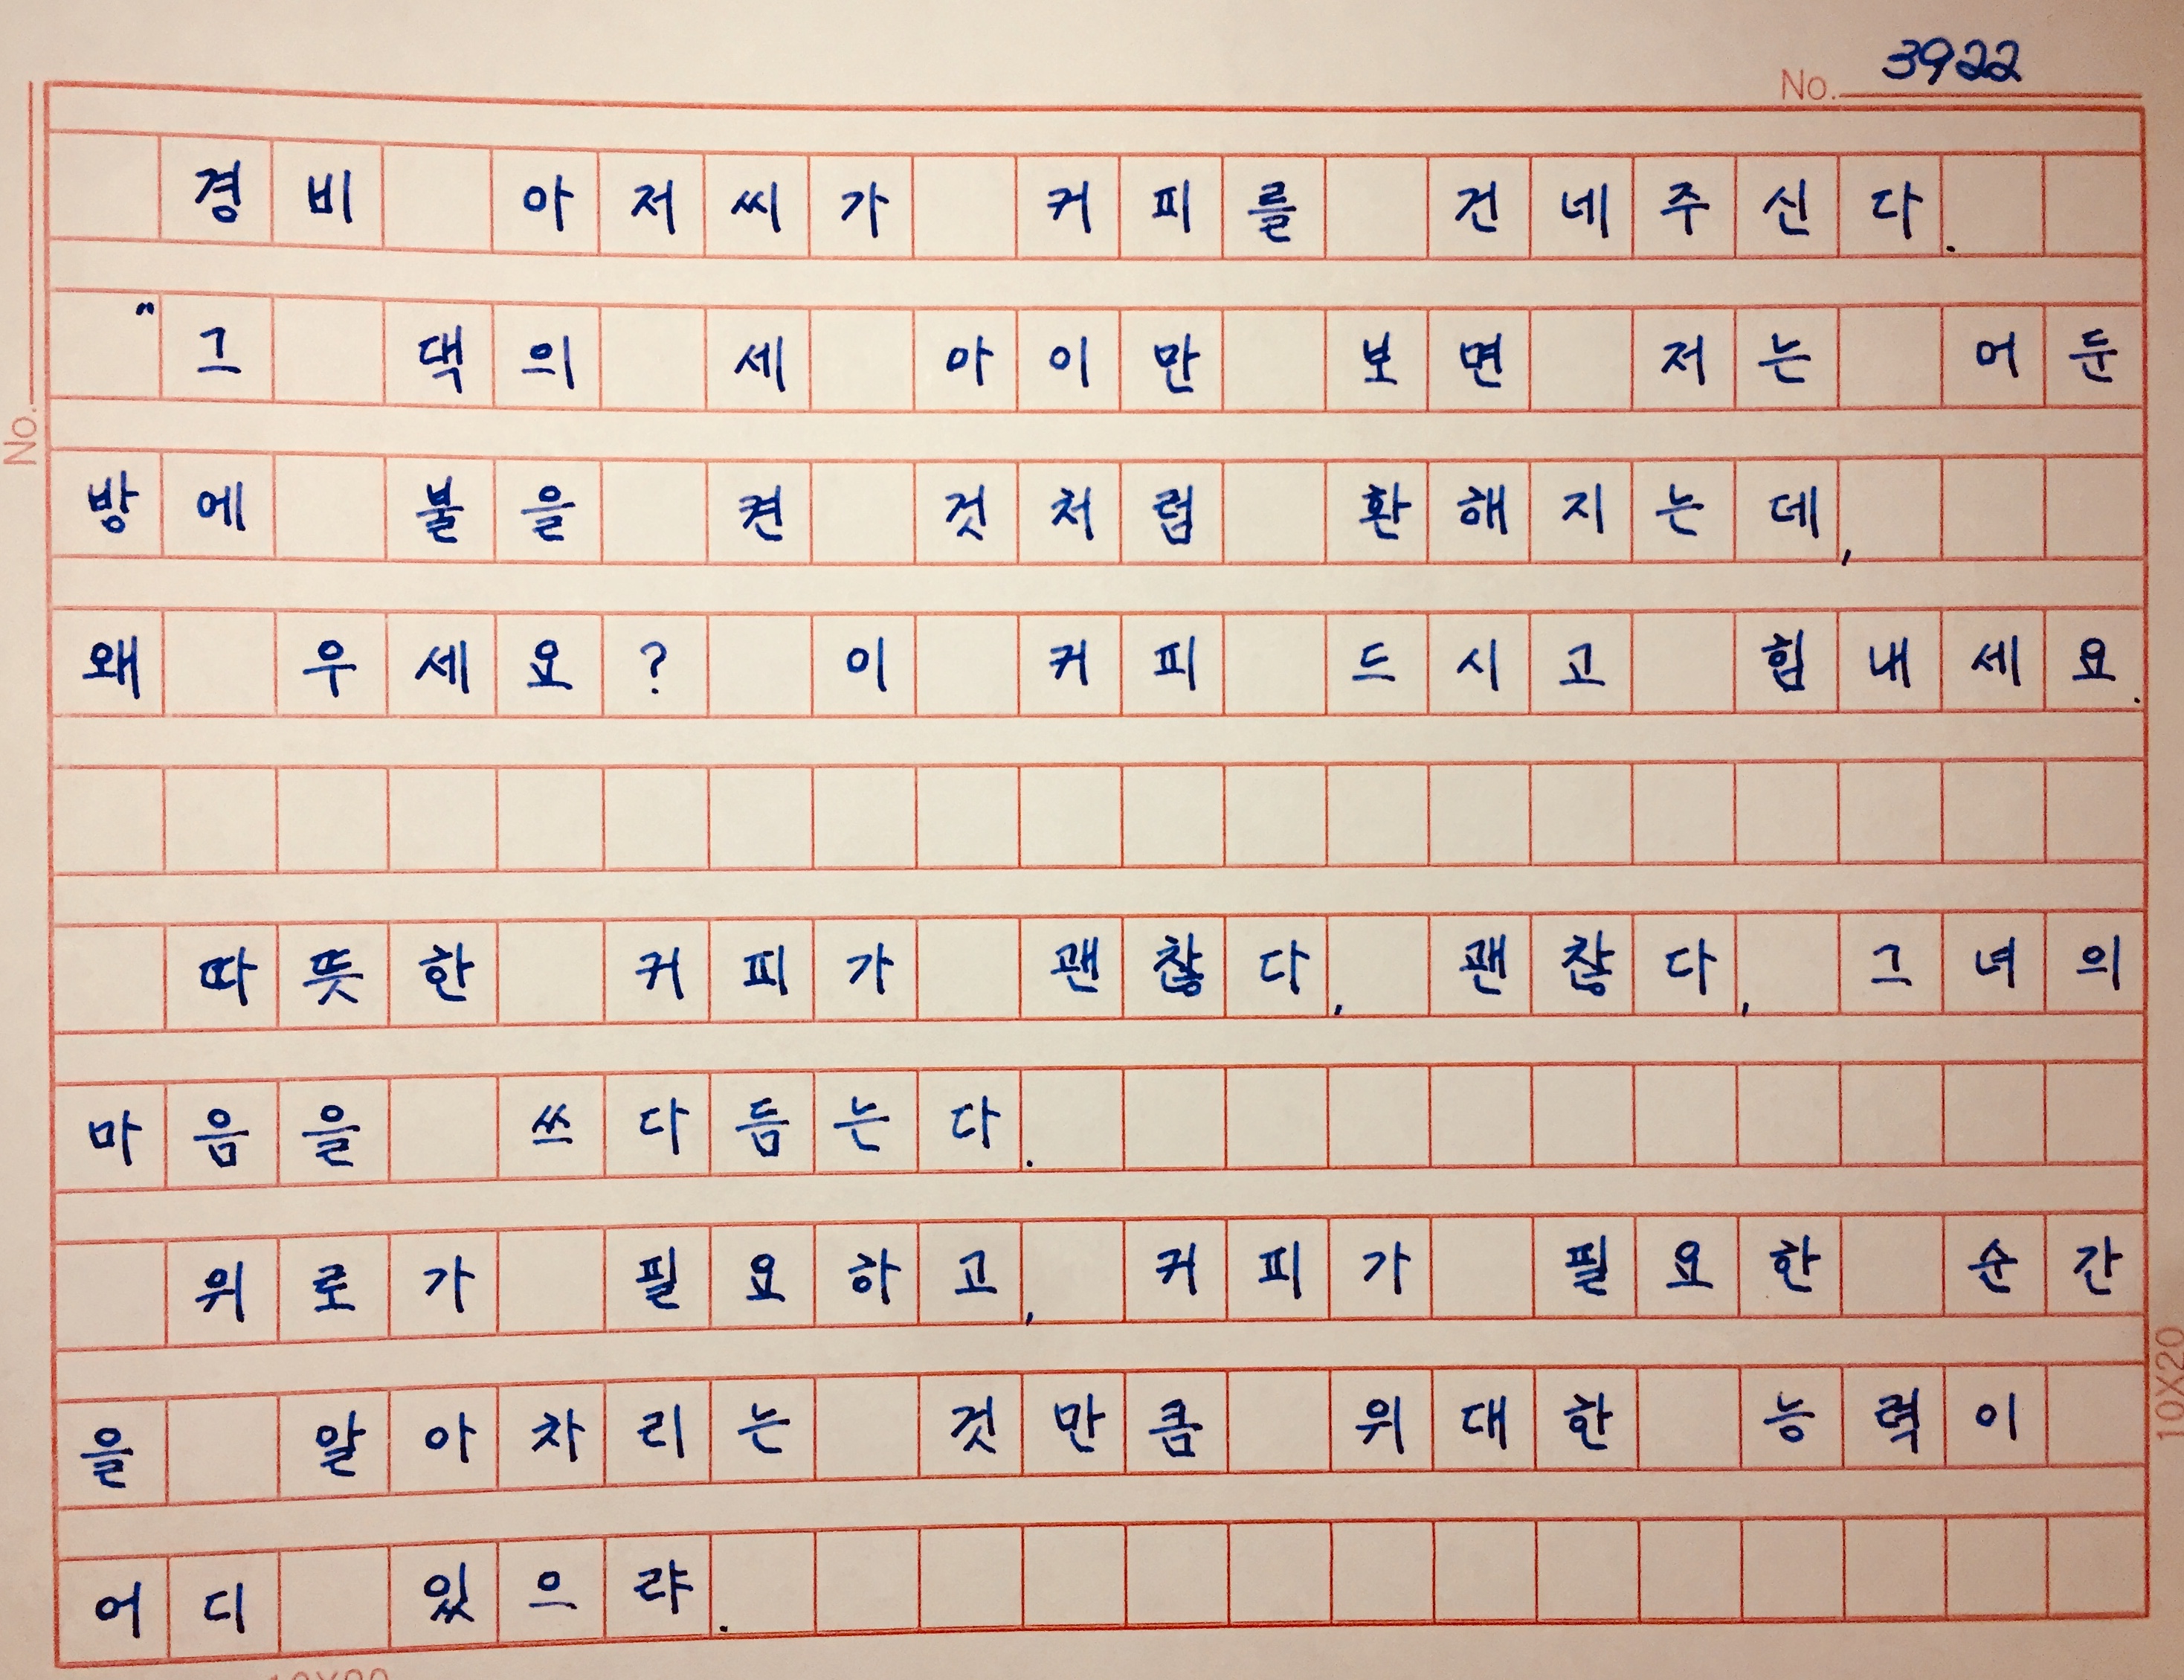 No. 3922
경비 아저씨가 커피를 건네주신다.
"그 댁의 세 아이만 보면 저는 어둔
방에 불을 켠 것처럼 환해지는데,
왜 우세요? 이 커피 드시고 힘내세요.
따뜻한 커피가 괜찮다, 괜찮다, 그녀의
마음을 쓰다듬는다.
위로가 필요하고, 커피가 필요한 순간
을 알아차리는 것만큼 위대한 능력이
어디 있으랴.
No.
10X20